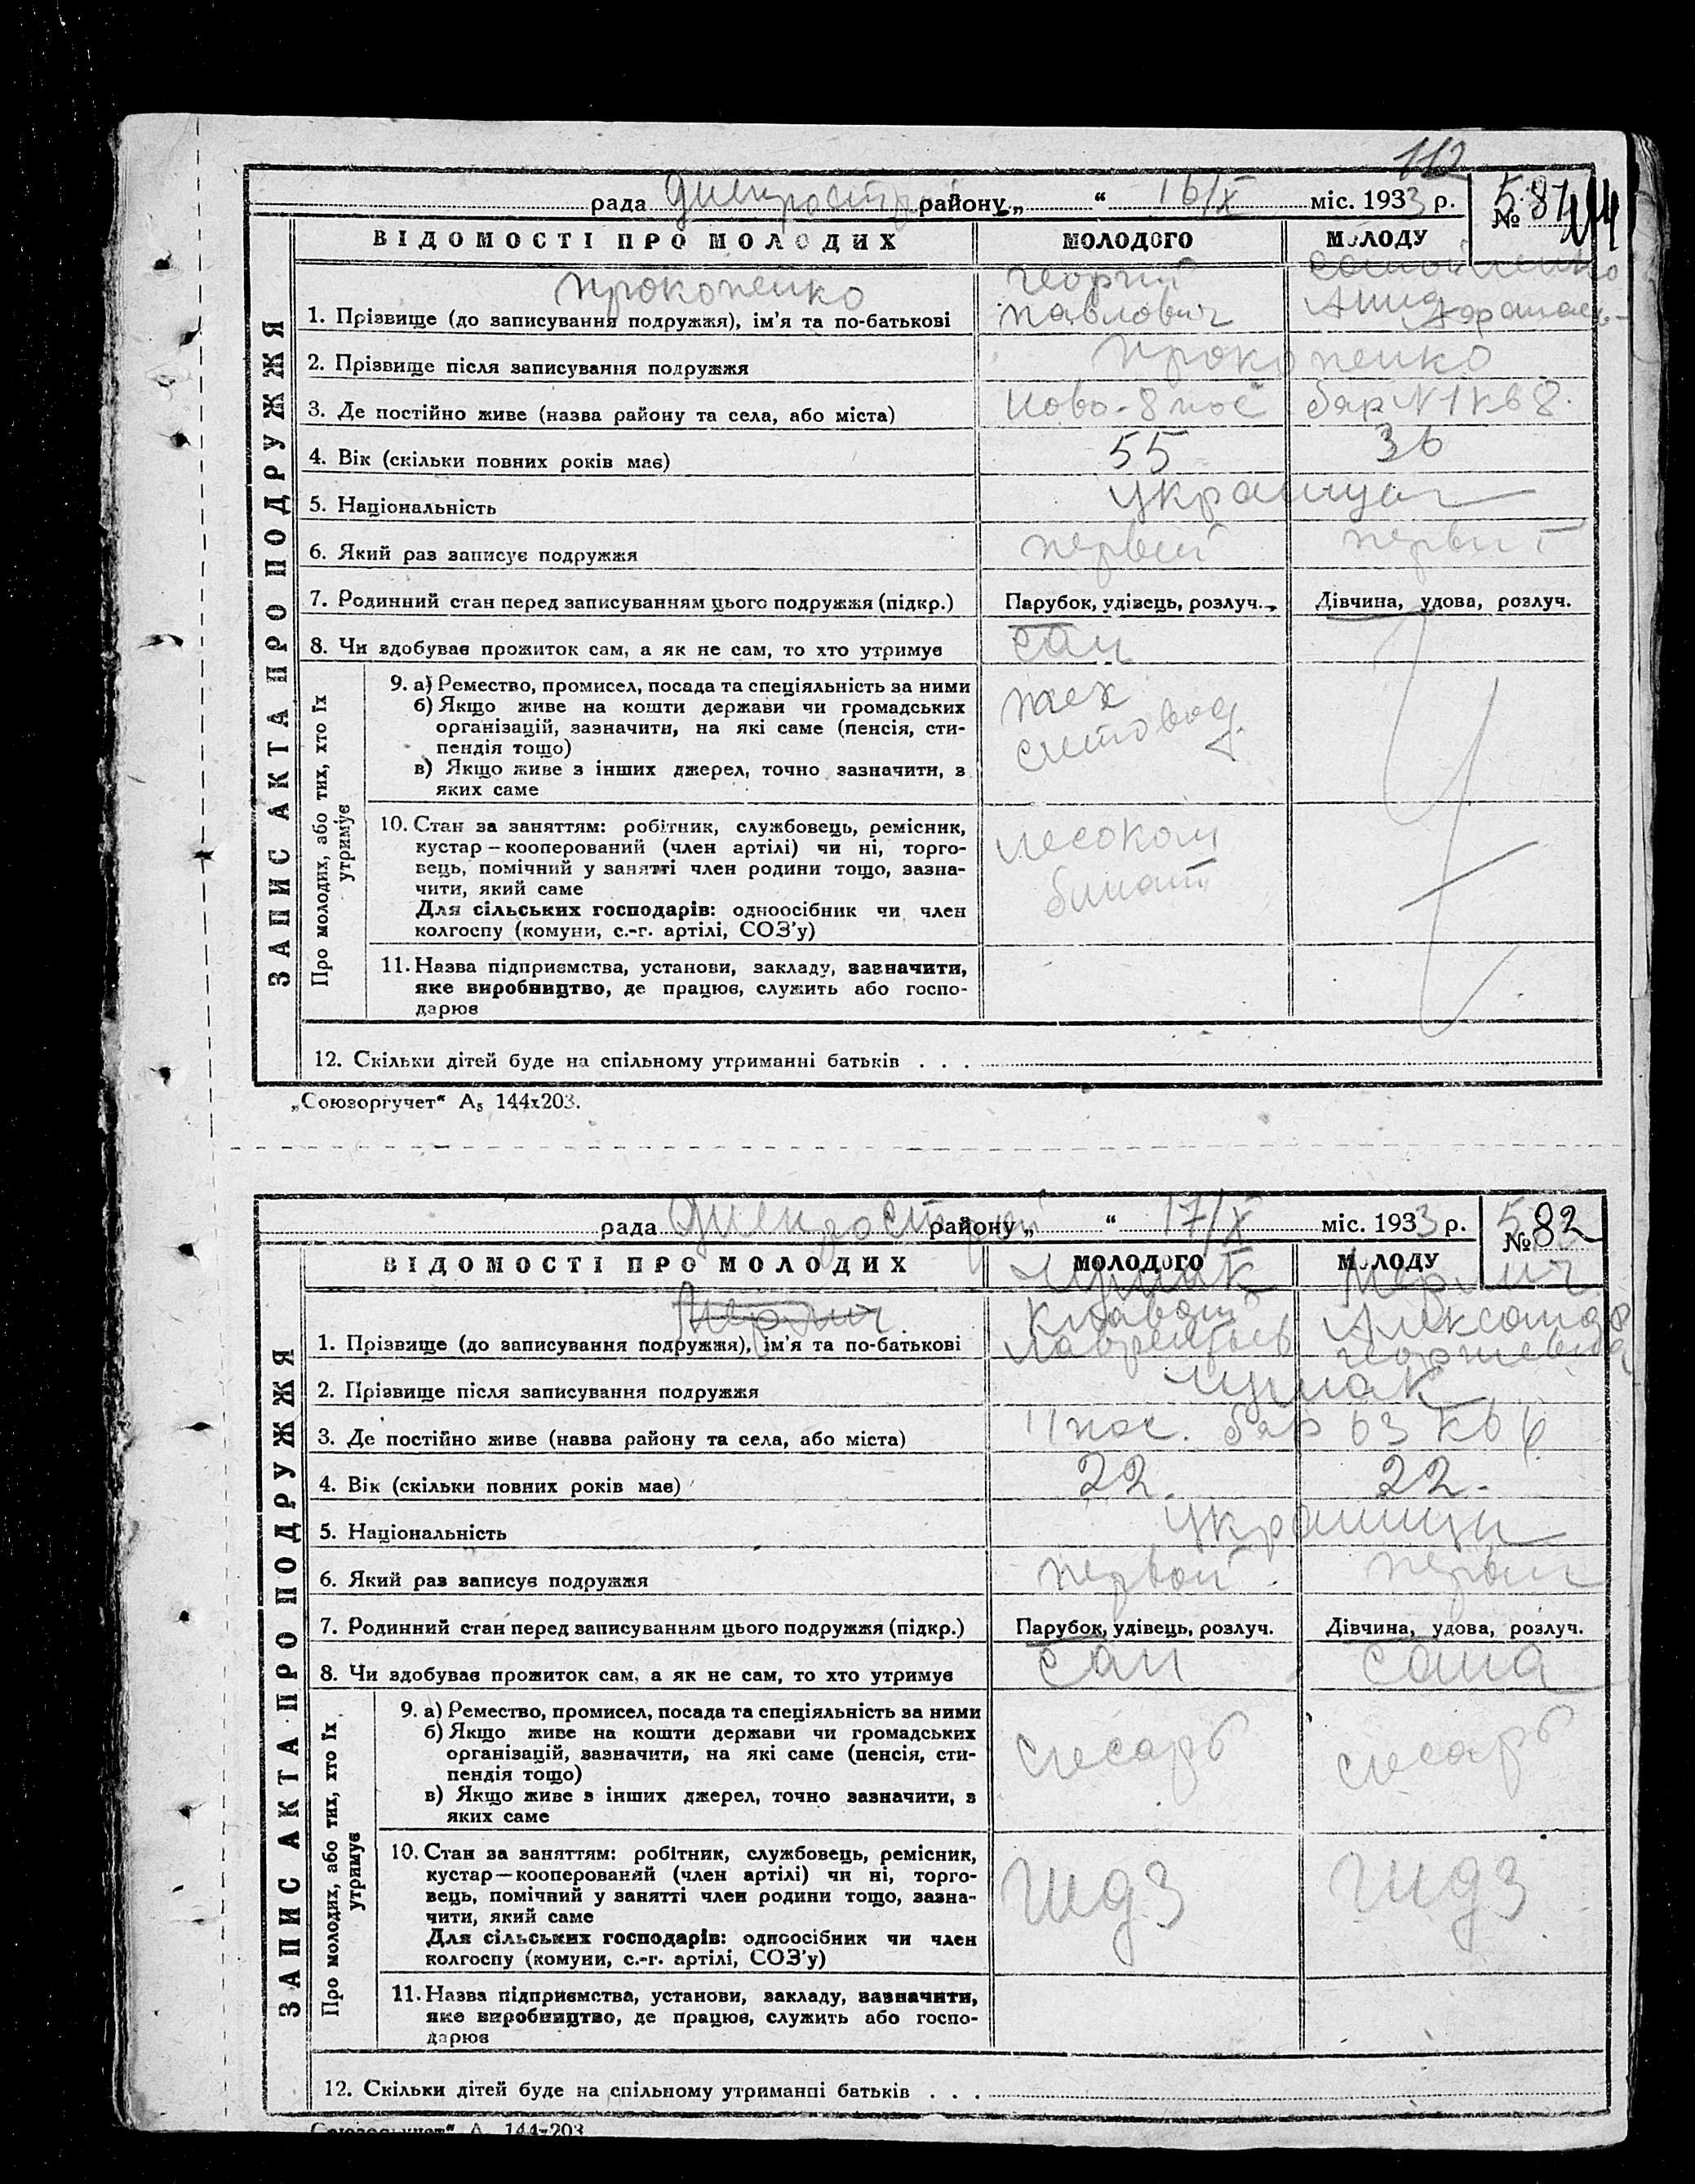 112
рада Днепрострой району „ “ 16/X міс. 1933 р. № 581
ВІДОМОСТІ ПРО МОЛОДИХ МОЛОДОГО МОЛОДУ
Прокопенко Георгий
1. Прізвище (до записування подружжя), ім’я та по-батькові Павлович Анна
2. Прізвище після записування подружжя Прокопенко
3. Де постійно живе (назва району та села, або міста) Ново-8 пос бар N 1 кв 8.
4. Вік (скільки повних років має) 55 36
5. Національність
6. Який раз записує подружжя первый первый
7. Родинний стан перед записуванням цього подружжя (підкр.) Парубок, удівець, розлуч. Дівчина, удова, розлуч.
8. Чи здобуває прожиток сам, а як не сам, то хто утримує сам
ЗАПИС АКТА ПРО ПОДРУЖЖЯ
Про молодих, або тих, хто їх утримує
9. а) Ремество, промисел, посада та спеціяльність за ними
б) Якщо живе на кошти держави чи громадських
організацій, зазначити, на які саме (пенсія, сти-
пендія тощо)
в) Якщо живе з інших джерел, точно зазначити, з
яких саме
счетовод
10. Стан за заняттям: робітник, службовець, ремісник,
кустар — кооперований (член артілі) чи ні, торго-
вець, помічний у занятті член родини тощо, зазна-
чити, який саме
Для сільських господарів: одноосібник чи член
колгоспу (комуни, с.-г. артілі, СОЗ’у)
лесоком
бинат
11. Назва підприємства, установи, закладу, зазначити,
яке виробництво, де працює, служить або госпо-
дарює
12. Скільки дітей буде на спільному утриманні батьків . . .
„Союзоргучет“ А5 144х203.
рада Днепрострой району „ “ 17/X міс. 1933 р. № 582
ВІДОМОСТІ ПРО МОЛОДИХ МОЛОДОГО МОЛОДУ
Александра
1. Прізвище (до записування подружжя), ім’я та по-батькові Георгиевна
2. Прізвище після записування подружжя
3. Де постійно живе (назва району та села, або міста) 11 пос. бар 63 кв 6
4. Вік (скільки повних років має) 22. 22.
5. Національність украинцы
6. Який раз записує подружжя первой первый
7. Родинний стан перед записуванням цього подружжя (підкр.) Парубок, удівець, розлуч. Дівчина, удова, розлуч.
8. Чи здобуває прожиток сам, а як не сам, то хто утримує сам сама
ЗАПИС АКТА ПРО ПОДРУЖЖЯ
Про молодих, або тих, хто їх утримує
9. а) Ремество, промисел, посада та спеціяльність за ними
б) Якщо живе на кошти держави чи громадських
організацій, зазначити, на які саме (пенсія, сти-
пендія тощо)
в) Якщо живе з інших джерел, точно зазначити, з
яких саме
слесарь слесарь
10. Стан за заняттям: робітник, службовець, ремісник,
кустар — кооперований (член артілі) чи ні, торго-
вець, помічний у занятті член родини тощо, зазна-
чити, який саме
Для сільських господарів: одноосібник чи член
колгоспу (комуни, с.-г. артілі, СОЗ’у)
шдз шдз
11. Назва підприємства, установи, закладу, зазначити,
яке виробництво, де працює, служить або госпо-
дарює
12. Скільки дітей буде на спільному утриманні батьків . . .
„Союзоргучет“ А 144х203